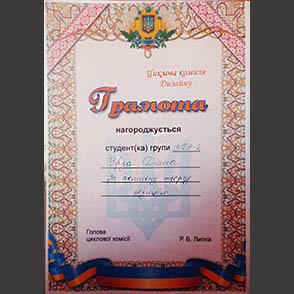 Циклова комісія
Дизайну
Грамота
нагороджується
студент(ка) групи
Діана
За активну творчу
позицію
Голова
циклової комісії Р. Б. Липка